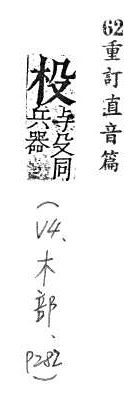 62重訂直音篇
杸与殳同
兵器
(V4、木部、P282)